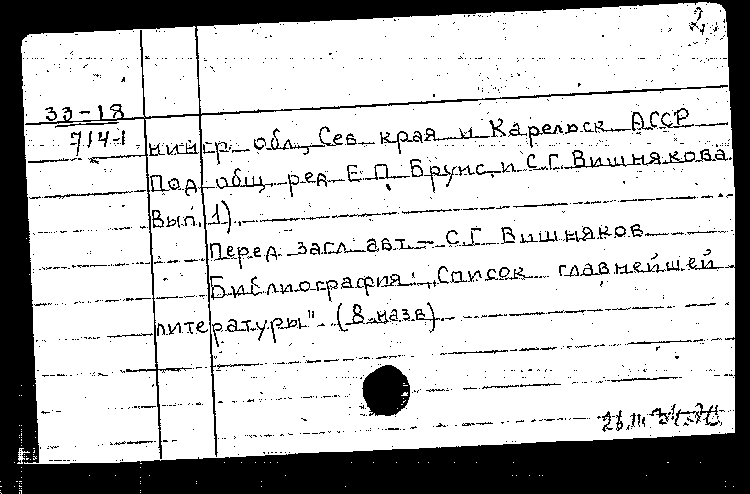 2.
33-18
714-1
нингр. обл., Сев. края и Карельск. АССР
Под общ. ред. Е. П. Брунс и С. Г. Вишнякова.
Вып. 1).
Перед загл. авт. – С. Г. Вишняков.
Библиография: "Список главнейшей
литературы" (8 назв.)